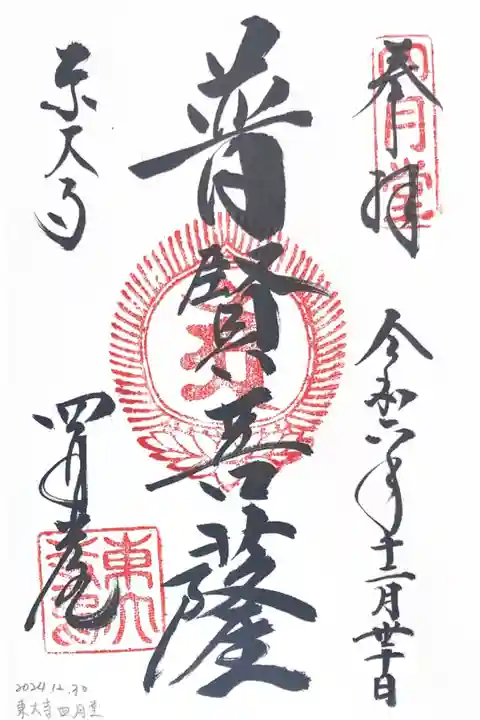 奉拝
四月堂
令和六年十二月卅日
普賢菩薩
東大寺
四月堂
東大寺
2024.12.30
東大寺四月堂